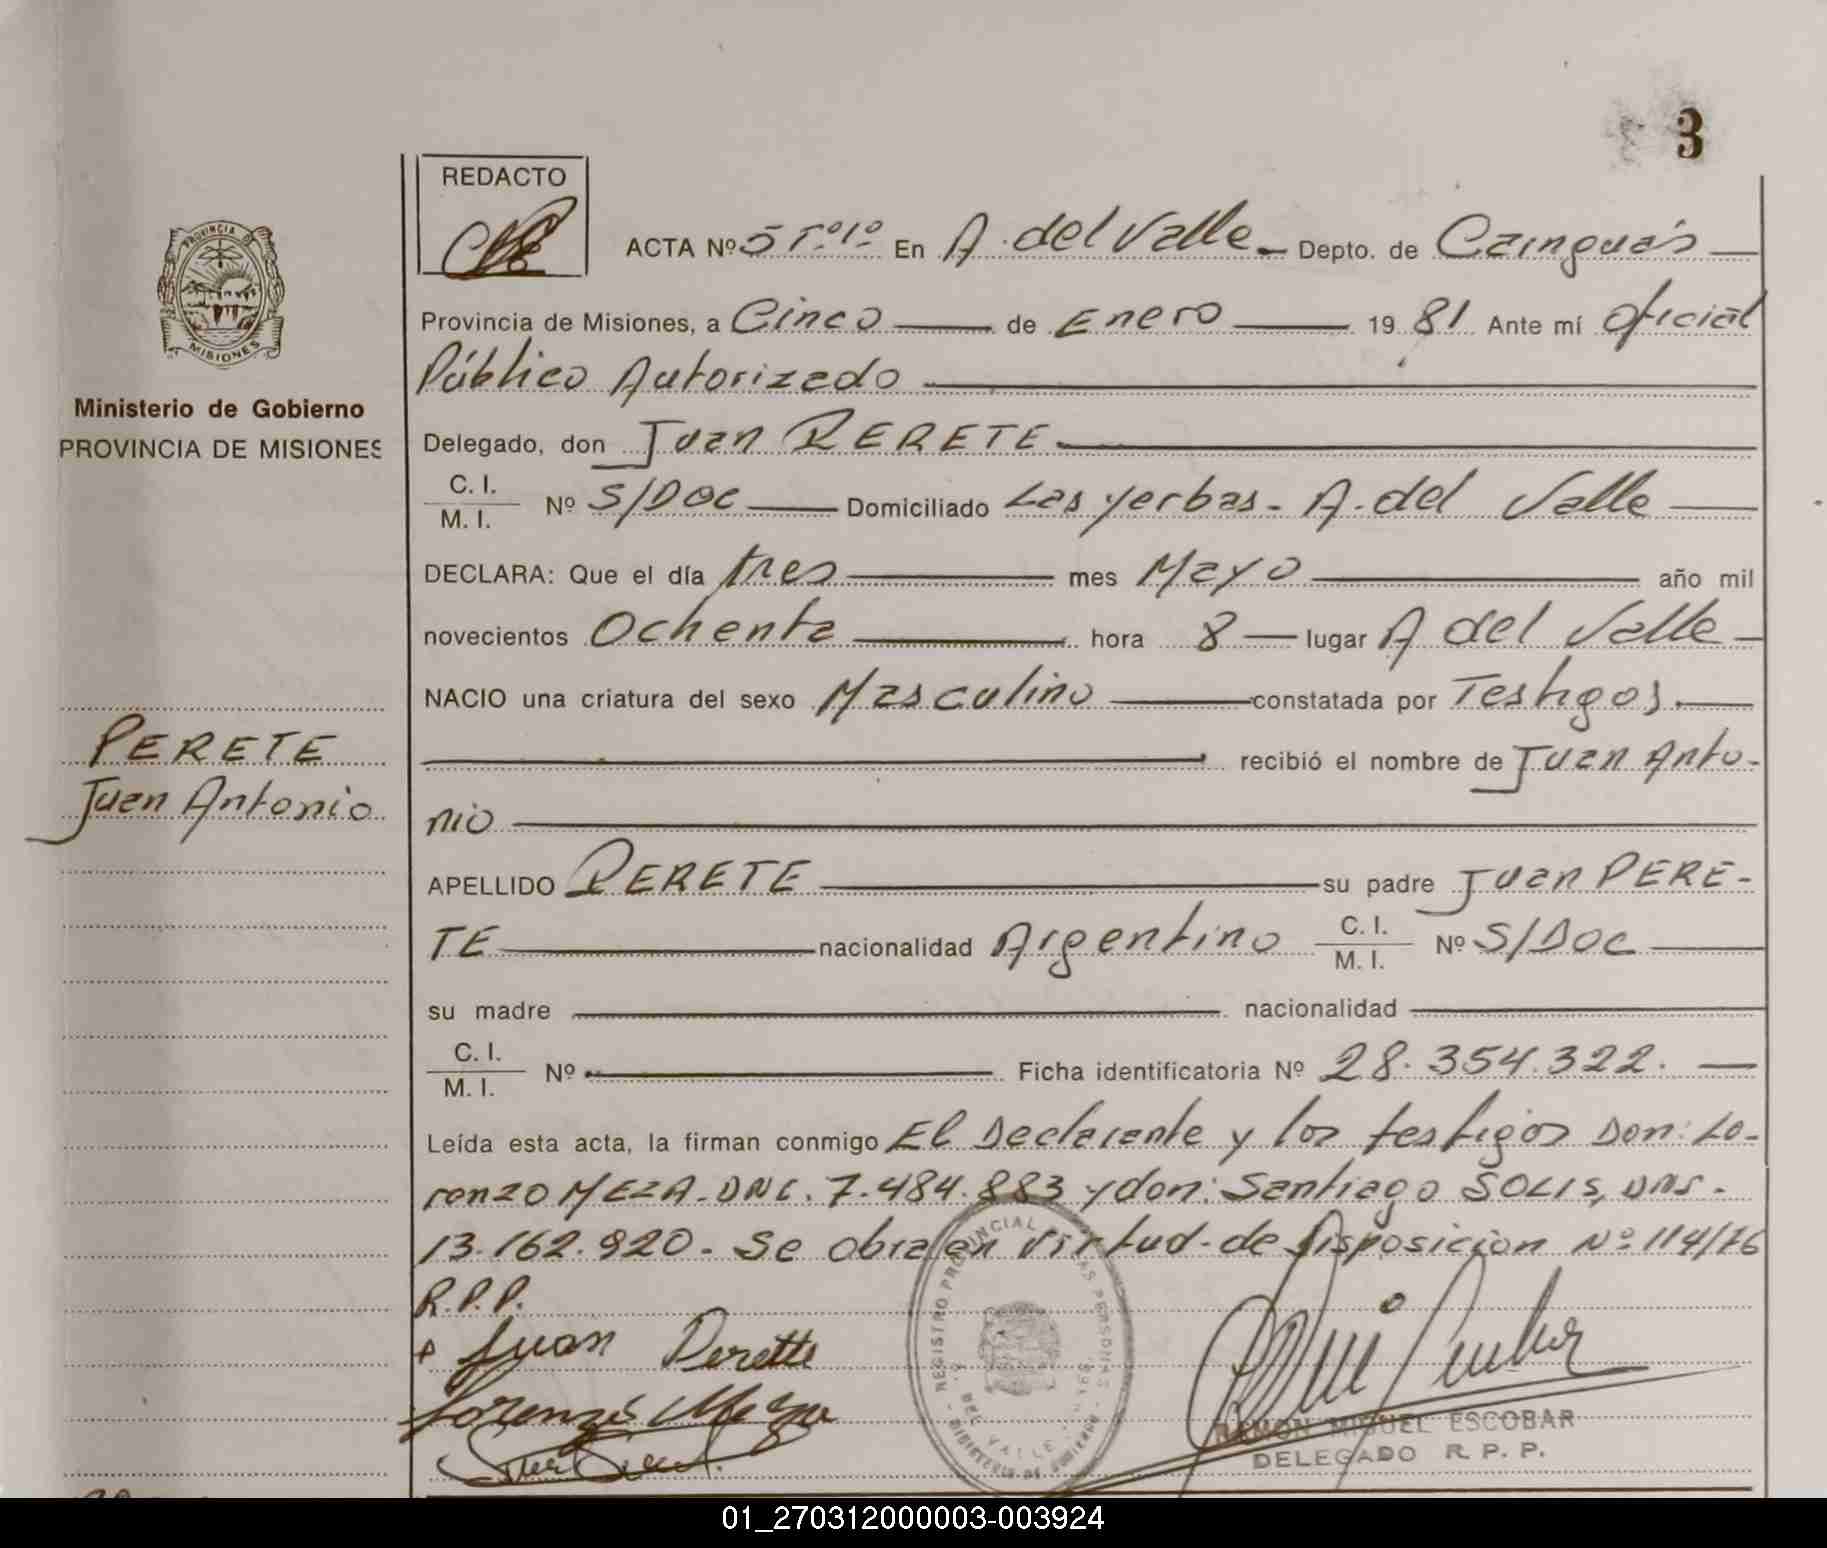 3
REDACTO
ACTA Nº 5 Tº1º En A. del Valle Depto. de Cainguás
Provincia de Misiones, a Cinco de Enero 19 81 Ante mí oficial
Público Autorizado
Delegado, don Juan PERETE
C. I.
M. I. Nº S/DOC Domiciliado Las yerbas - A. del Valle
DECLARA: Que el día tres mes Mayo año mil
novecientos Ochenta hora 8 lugar A del Valle
NACIO una criatura del sexo Masculino constatada por Testigos.
recibió el nombre de Juan Anto-
nio
APELLIDO PERETE su padre Juan PERE-
TE nacionalidad Argentino C. I. M. I. Nº S/DOC
su madre nacionalidad
C. I.
M. I. Nº Ficha identificatoria Nº 28.354.322.
Leída esta acta, la firman conmigo El Declarante y los testigos Don: Lo-
renzo MEZA. DNI. 7.484.883 y don: Santiago SOLIS, DNI.
13.162.920. Se obra en virtud de Disposicion Nº 114/76
R.P.P.
Juan Perette
Lorenzo Meza
REGISTRO PROVINCIAL DE LAS PERSONAS
DEL VALLE
MINISTERIO DE GOBIERNO
RAMON MIGUEL ESCOBAR
DELEGADO R. P. P.
PROVINCIA DE
MISIONES
Ministerio de Gobierno
PROVINCIA DE MISIONES
PERETE
Juan Antonio
01_270312000003-003924